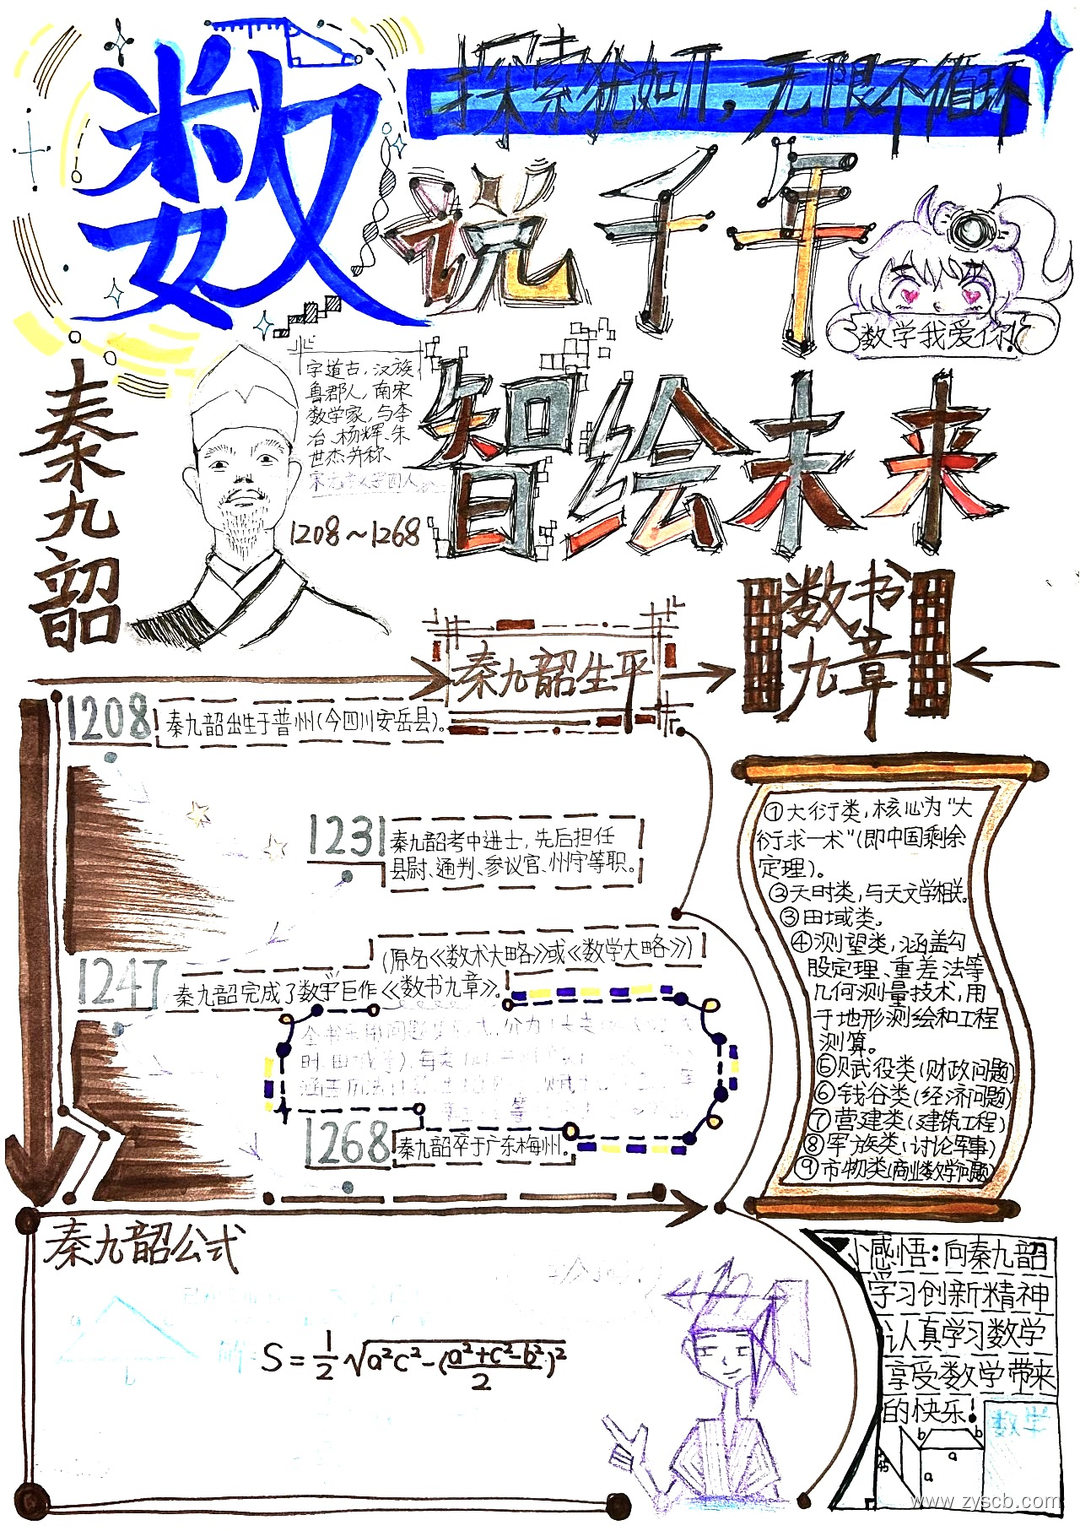 探索犹如π，无限不循环
数说千年
智绘未来
数学我爱你！
秦九韶
字道古，汉族
鲁郡人，南宋
数学家，与李
冶、杨辉、朱
世杰并称
1208～1268
秦九韶生平
数书
九章
1208
秦九韶出生于普州(今四川安岳县)。
1231
秦九韶考中进士，先后担任
县尉、通判、参议官、州守等职。
1247
(原名《数术大略》或《数学大略》)
秦九韶完成了数学巨作《数书九章》。
1268
秦九韶卒于广东梅州。
①大衍类，核心为"大
衍求一术"(即中国剩余
定理)。
②天时类，与天文学相关。
③田域类。
④测望类，涵盖勾
股定理、重差法等
几何测量技术，用
于地形测绘和工程
测算。
⑤赋役类(财政问题)
⑥钱谷类(经济问题)
⑦营建类(建筑工程)
⑧军旅类(讨论军事)
⑨市物类(商业数学问题)
秦九韶公式
S=1/2√a²c²-(a²+c²-b²/2)²
小感悟：向秦九韶
学习创新精神
认真学习数学
享受数学带来
的快乐！
b
b
a
a
45
www.zyscb.com